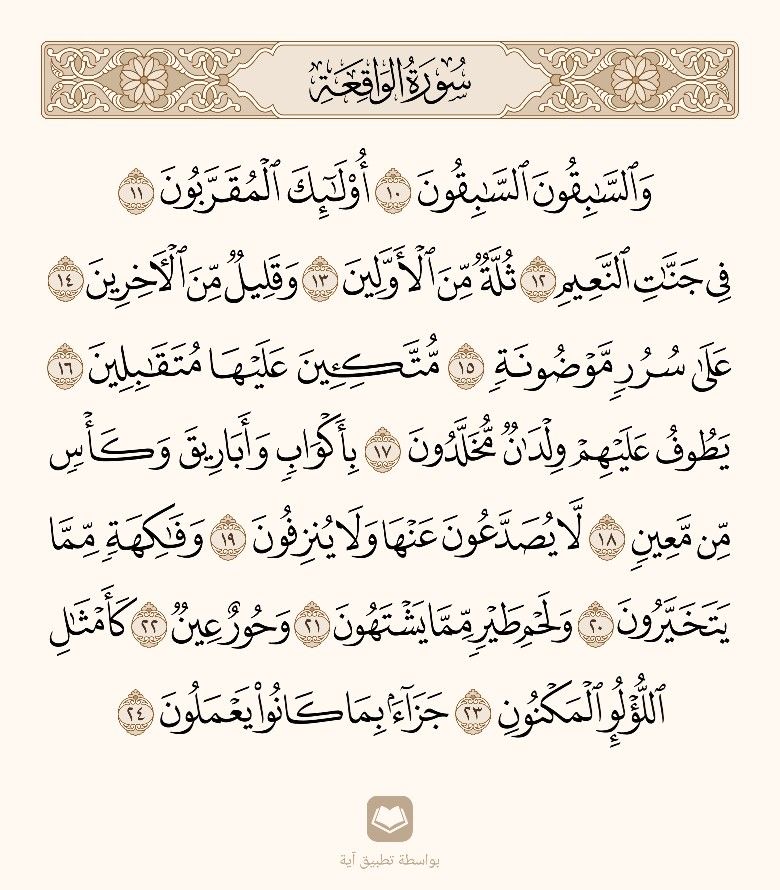 سُورَةُ الوَاقِعَةِ
وَٱلسَّٰبِقُونَ ٱلسَّٰبِقُونَ ١٠ أُوْلَٰٓئِكَ ٱلْمُقَرَّبُونَ ١١
فِى جَنَّٰتِ ٱلنَّعِيمِ ١٢ ثُلَّةٌ مِّنَ ٱلْأَوَّلِينَ ١٣ وَقَلِيلٌ مِّنَ ٱلْءَاخِرِينَ ١٤
عَلَىٰ سُرُرٍ مَّوْضُونَةٍ ١٥ مُّتَّكِـِٔينَ عَلَيْهَا مُتَقَٰبِلِينَ ١٦
يَطُوفُ عَلَيْهِمْ وِلْدَٰنٌ مُّخَلَّدُونَ ١٧ بِأَكْوَابٍ وَأَبَارِيقَ وَكَأْسٍ
مِّن مَّعِينٍ ١٨ لَّا يُصَدَّعُونَ عَنْهَا وَلَا يُنزِفُونَ ١٩ وَفَٰكِهَةٍ مِّمَّا
يَتَخَيَّرُونَ ٢٠ وَلَحْمِ طَيْرٍ مِّمَّا يَشْتَهُونَ ٢١ وَحُورٌ عِينٌ ٢٢ كَأَمْثَٰلِ
ٱللُّؤْلُؤِ ٱلْمَكْنُونِ ٢٣ جَزَآءًۢ بِمَا كَانُوا۟ يَعْمَلُونَ ٢٤
بواسطة تطبيق آية